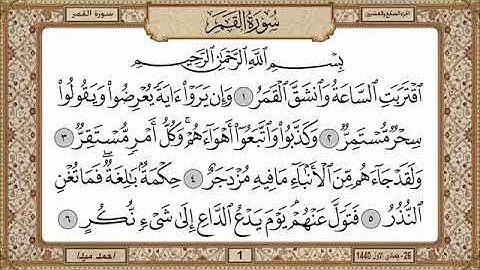 سورة القمر
الجزء السابع والعشرون
سُورَةُ القَمَرِ
بِسْمِ اللَّهِ الرَّحْمَٰنِ الرَّحِيمِ
اقْتَرَبَتِ السَّاعَةُ وَانشَقَّ الْقَمَرُ ١ وَإِن يَرَوْا ءَايَةً يُعْرِضُوا وَيَقُولُوا
سِحْرٌ مُّسْتَمِرٌّ ٢ وَكَذَّبُوا وَاتَّبَعُوا أَهْوَاءَهُمْ ۚ وَكُلُّ أَمْرٍ مُّسْتَقِرٌّ ٣
وَلَقَدْ جَاءَهُم مِّنَ الْأَنبَاءِ مَا فِيهِ مُزْدَجَرٌ ٤ حِكْمَةٌ بَالِغَةٌ ۖ فَمَا تُغْنِ
النُّذُرُ ٥ فَتَوَلَّ عَنْهُمْ ۘ يَوْمَ يَدْعُ الدَّاعِ إِلَىٰ شَيْءٍ نُّكُرٍ ٦
26- جمادى الأول 1440
1